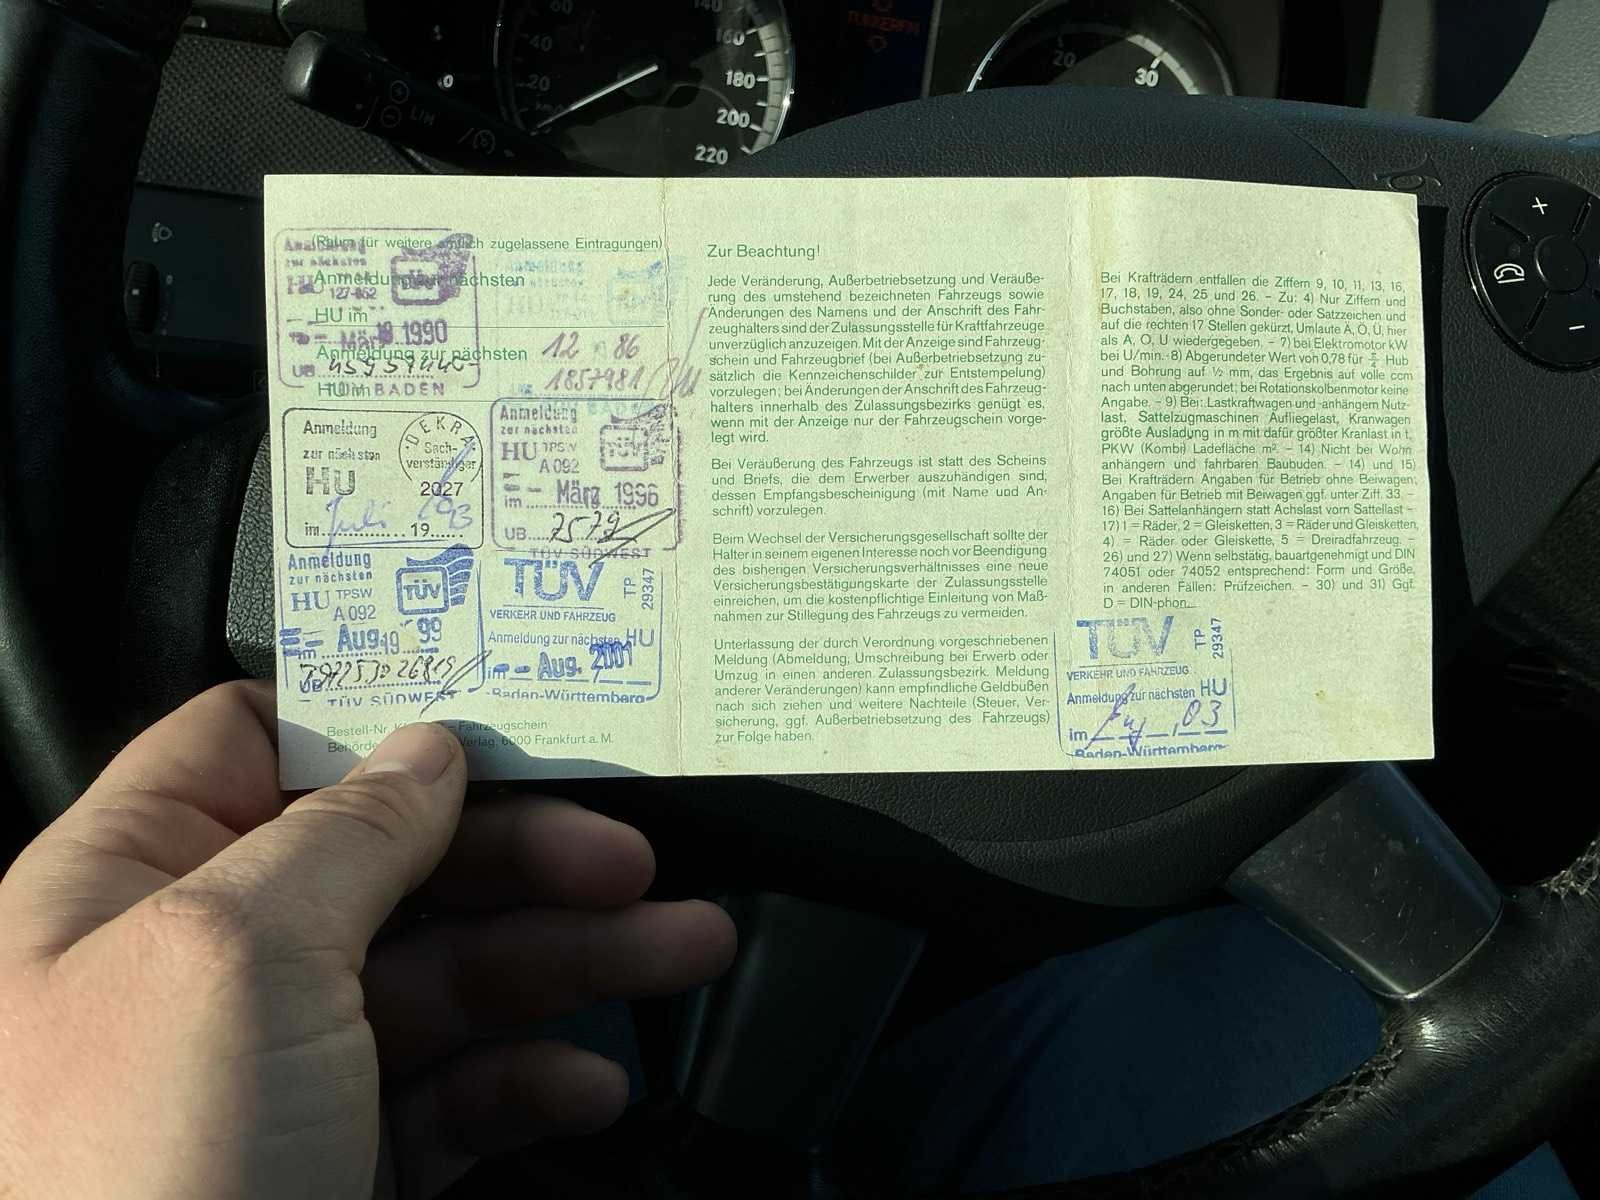 60
140
40
160
20
180
200
220
20
30
LIM
(Raum für weitere amtlich zugelassene Eintragungen)
Anmeldung zur nächsten
HU im
Anmeldung zur nächsten
12 86
HU im
1857981
zur nächsten
HU
127-052
März 1990
UB
BADEN
Anmeldung
zur nächsten
HU
im Juli 19
DEKRA
Sach-
verständiger
2027
93
Anmeldung
zur nächsten
HU TPSW
A 092
TÜV
im März 1996
UB 7579
TÜV SÜDWEST
Anmeldung
zur nächsten
HU TPSW
A 092
TÜV
im Aug. 19 99
UB
TÜV SÜDWEST
TÜV
TP
29347
VERKEHR UND FAHRZEUG
Anmeldung zur nächsten HU
im Aug. 2001
Baden-Württemberg
Bestell-Nr. Fahrzeugschein
Behörde Verlag, 6000 Frankfurt a. M.
Zur Beachtung!
Jede Veränderung, Außerbetriebsetzung und Veräuße-
rung des umstehend bezeichneten Fahrzeugs sowie
Änderungen des Namens und der Anschrift des Fahr-
zeughalters sind der Zulassungsstelle für Kraftfahrzeuge
unverzüglich anzuzeigen. Mit der Anzeige sind Fahrzeug-
schein und Fahrzeugbrief (bei Außerbetriebsetzung zu-
sätzlich die Kennzeichenschilder zur Entstempelung)
vorzulegen; bei Änderungen der Anschrift des Fahrzeug-
halters innerhalb des Zulassungsbezirks genügt es,
wenn mit der Anzeige nur der Fahrzeugschein vorge-
legt wird.
Bei Veräußerung des Fahrzeugs ist statt des Scheins
und Briefs, die dem Erwerber auszuhändigen sind,
dessen Empfangsbescheinigung (mit Name und An-
schrift) vorzulegen.
Beim Wechsel der Versicherungsgesellschaft sollte der
Halter in seinem eigenen Interesse noch vor Beendigung
des bisherigen Versicherungsverhältnisses eine neue
Versicherungsbestätigungskarte der Zulassungsstelle
einreichen, um die kostenpflichtige Einleitung von Maß-
nahmen zur Stillegung des Fahrzeugs zu vermeiden.
Unterlassung der durch Verordnung vorgeschriebenen
Meldung (Abmeldung, Umschreibung bei Erwerb oder
Umzug in einen anderen Zulassungsbezirk. Meldung
anderer Veränderungen) kann empfindliche Geldbußen
nach sich ziehen und weitere Nachteile (Steuer, Ver-
sicherung, ggf. Außerbetriebsetzung des Fahrzeugs)
zur Folge haben.
Bei Krafträdern entfallen die Ziffern 9, 10, 11, 13, 16,
17, 18, 19, 24, 25 und 26. – Zu: 4) Nur Ziffern und
Buchstaben, also ohne Sonder- oder Satzzeichen und
auf die rechten 17 Stellen gekürzt, Umlaute Ä, Ö, Ü, hier
als A, O, U wiedergegeben. – 7) bei Elektromotor kW
bei U/min.-8) Abgerundeter Wert von 0,78 für Hub
und Bohrung auf ½ mm, das Ergebnis auf volle ccm
nach unten abgerundet; bei Rotationskolbenmotor keine
Angabe. – 9) Bei: Lastkraftwagen und -anhängern Nutz-
last, Sattelzugmaschinen Aufliegelast, Kranwagen
größte Ausladung in m mit dafür größter Kranlast in t,
PKW (Kombi) Ladefläche m². – 14) Nicht bei Wohn
anhängern und fahrbaren Baubuden. – 14) und 15)
Bei Krafträdern Angaben für Betrieb ohne Beiwagen;
Angaben für Betrieb mit Beiwagen ggf. unter Ziff. 33. –
16) Bei Sattelanhängern statt Achslast vorn Sattellast –
17) 1 = Räder, 2 = Gleisketten, 3 = Räder und Gleisketten,
4) = Räder oder Gleiskette, 5 = Dreiradfahrzeug. –
26) und 27) Wenn selbstätig, bauartgenehmigt und DIN
74051 oder 74052 entsprechend: Form und Größe,
in anderen Fällen: Prüfzeichen. – 30) und 31) Ggf.
D = DIN-phon
TÜV
TP
29347
VERKEHR UND FAHRZEUG
Anmeldung zur nächsten HU
im 03
Baden-Württemberg